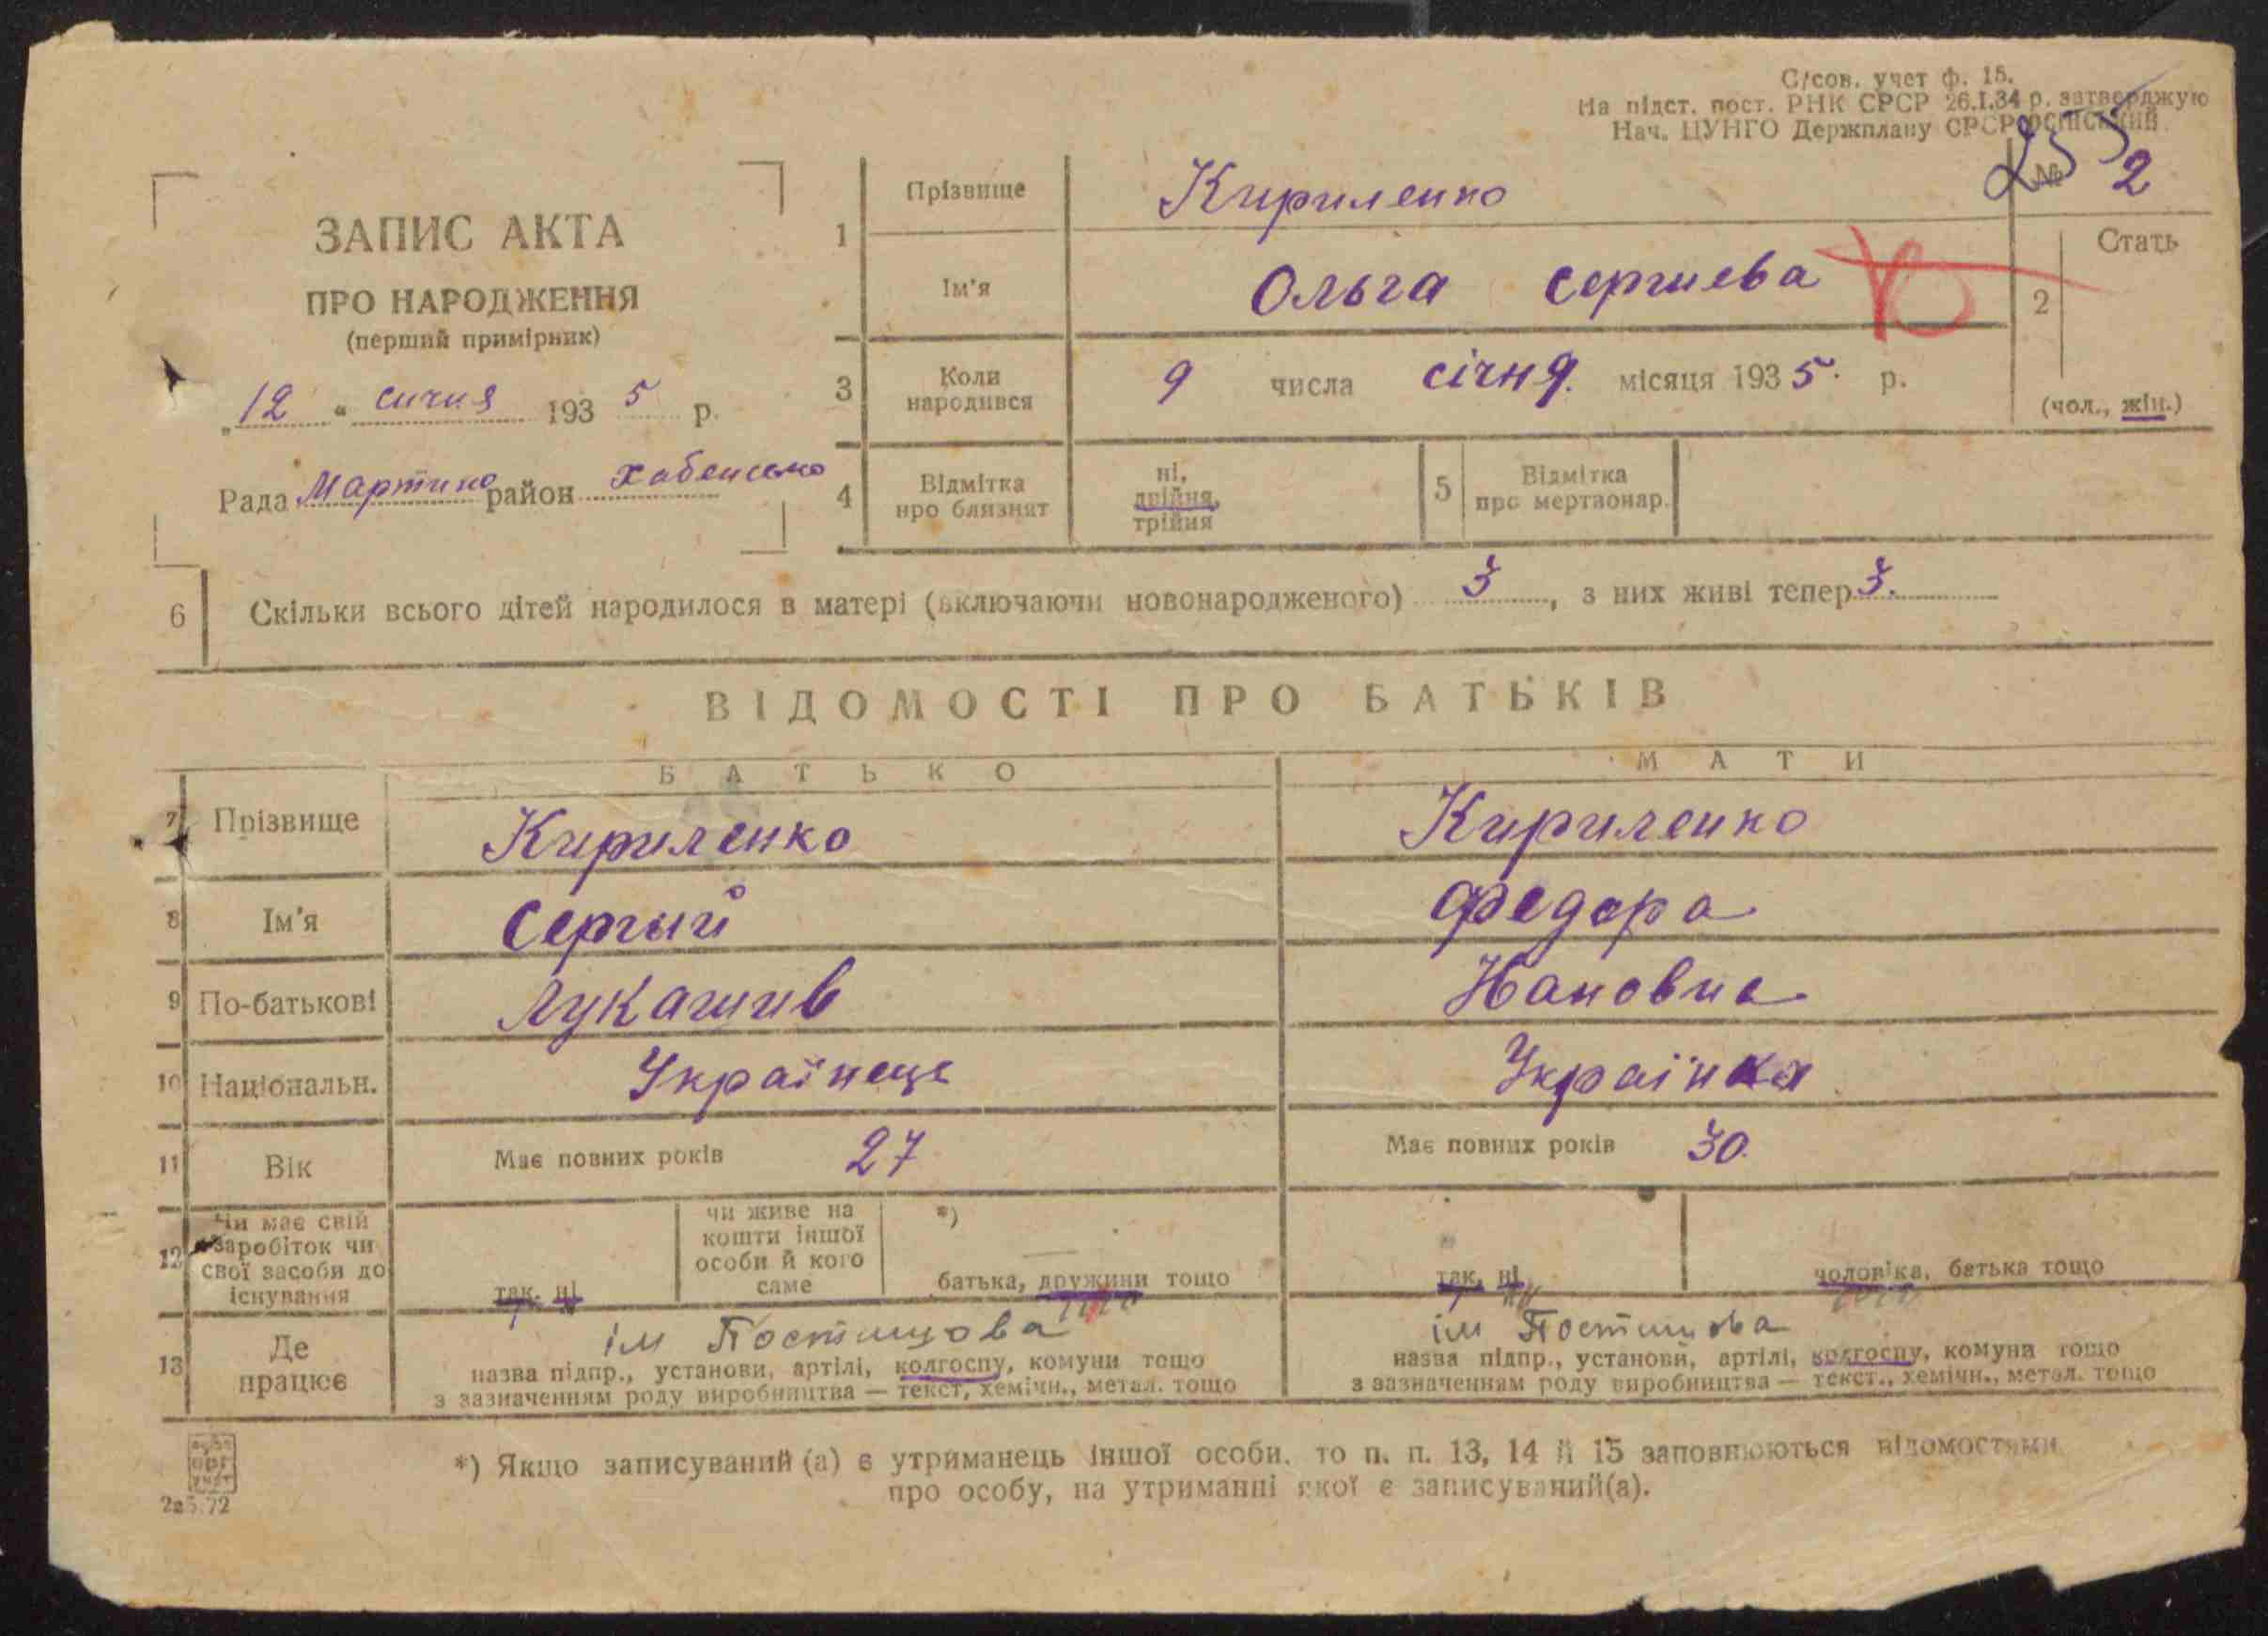 С/сов. учет ф. 15.
На підст. пост. РНК СРСР 26.I.34 р. затверджую
Нач. ЦУНГО Держплану СРСР
255
№ 2
ЗАПИС АКТА
ПРО НАРОДЖЕННЯ
(перший примірник)
„12“ сичня 1935 р.
Рада Мартино район Хабенсько
1 Прізвище Кириленко
Ім'я Ольга Сергиева
2 Стать
(чол., жін.)
3 Коли народився 9 числа січня. місяця 1935. р.
4 Відмітка про близнят
ні,
двійня,
трійня
5 Відмітка про мертвонар.
6 Скільки всього дітей народилося в матері (включаючи новонародженого) 3, з них живі тепер 3.
ВІДОМОСТІ ПРО БАТЬКІВ
БАТЬКО МАТИ
7 Прізвище Кириленко Кириленко
8 Ім'я Сергий Федора
9 По-батькові Лукашив
10 Національн. Українець Українка
11 Вік Має повних років 27 Має повних років 30.
12 Чи має свій заробіток чи свої засоби до існування
так, ні
чи живе на кошти іншої особи й кого саме
*)
батька, дружини тощо
так, ні
чоловіка, батька тощо
13 Де працює
ім Постишова ім Постишова
назва підпр., установи, артілі, колгоспу, комуни тощо назва підпр., установи, артілі, колгоспу, комуна тощо
з зазначенням роду виробництва — текст, хемічн., метал. тощо з зазначенням роду виробництва — текст., хемічн., метал. тощо
*) Якщо записуваний (а) є утриманець іншої особи, то п. п. 13, 14 й 15 заповнюються відомостями
про особу, на утриманні якої є записуваний(а).